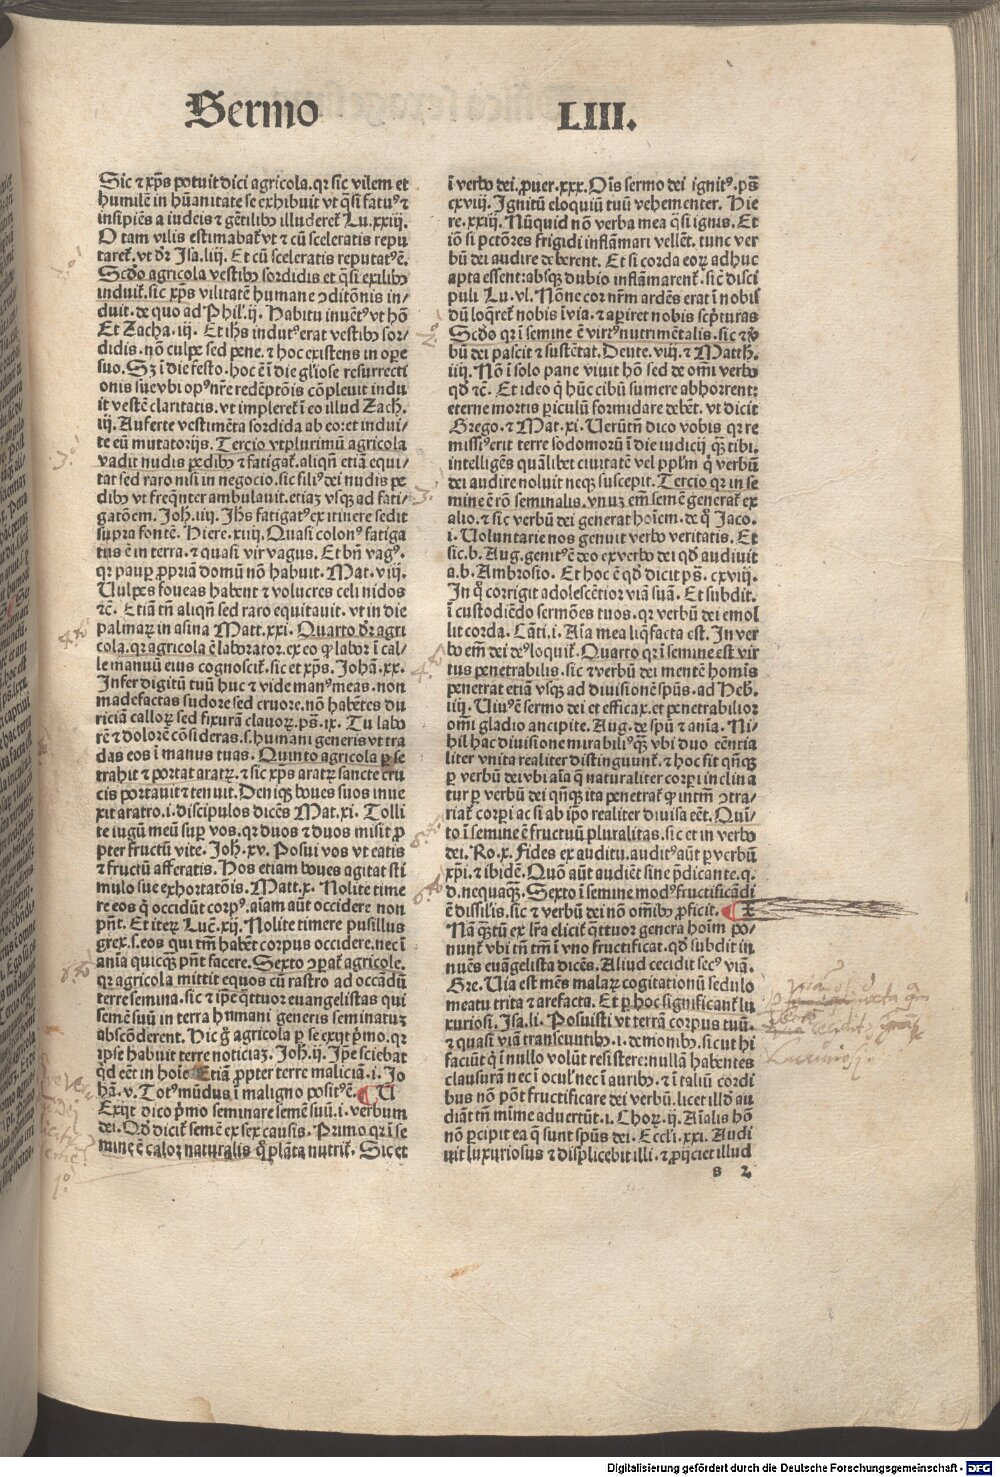 Sermo LIII.
Sic ⁊ xp̄s potuit dici agricola. qꝛ sic vilem et
humilē in hūanitate se exhibuit vt q̄si fatuꝰ ⁊
insipiēs a iudeis ⁊ gētilibꝰ illuderet᷑ Lu. xxiij.
O tam vilis estimabat᷑ vt ⁊ cū sceleratis repu
taret᷑. vt dꝛ Isa. liij. Et cū sceleratis reputatꝰ ē.
Scd̄o agricola vestibꝰ sordidis et q̄si exilibꝰ
induit᷑. sic xp̄s vilitatē humane ↄditōnis in/
duit. de quo ad Phil. ij. Habitu inuētꝰ vt hō
Et Zacha. iij. Et ih̄s indutꝰ erat vestibꝰ sor/
didis. nō culpe sed pene. ⁊ hoc existens in opere
suo. Sꝫ ī die festo. hoc ē ī die gl̄iose resurrecti
onis sue vbi opꝰ nr̄e redēptōis cōpleuit indu
it vestē claritatis. vt impleret᷑ ī eo illud Zach.
iij. Auferte vestimēta sordida ab eo: et indui/
te eū mutatorijs. Tercio vt plurimū agricola
vadit nudis pedibꝰ ⁊ fatigat᷑. aliqn̄ etiā equi/
tat sed raro nisi in negocio. sic filiꝰ dei nudis pe
dibꝰ vt freq̄nter ambulauit. etiaꝫ vsqꝫ ad fati/
gatōem. Joh. iiij. Ih̄s fatigatꝰ ex itinere sedit
supra fontē. Hiere. xiiij. Quasi colonꝰ fatiga
tus ē in terra. ⁊ quasi vir vagus. Et bn̄ vagꝰ.
qꝛ pauꝑ ꝓpriā domū nō habuit. Mat. viij.
Uulpes foueas habent ⁊ volucres celi nidos
⁊c̄. Etiā tn̄ aliqn̄ sed raro equitauit. vt in die
palmaꝝ in asina Matt. xxi. Quarto dr̄ agri
cola. qꝛ agricola ē laborator. ex eo ꝙ labor ī cal/
le manuū eius cognoscit᷑. sic et xp̄s. Johā. xx.
Infer digitū tuū huc ⁊ vide manꝰ meas. non
madefactas sudore sed cruore. nō habētes du
riciā calloꝝ sed fixurā clauoꝝ. ps̄. ix. Tu labo
rē ⁊ dolorē cōsideras. s. humani generis vt tra
das eos ī manus tuas. Quinto agricola ꝑ se
trahit ⁊ portat aratꝝ. ⁊ sic xp̄s aratꝝ sancte cru
cis portauit ⁊ tenuit. Deniqꝫ boues suos inue
xit aratro. i. discipulos dicēs Mat. xi. Tolli
te iugū meū suꝑ vos. qꝛ duos ⁊ duos misit ꝓ
pter fructū vite. Joh. xv. Posui vos vt eatis
⁊ fructū afferatis. Hos etiam boues agitat sti
mulo sue exhortatōis. Matt. x. Nolite time
re eos q̄ occidūt corpꝰ. aīam aūt occidere non
pn̄t. Et iteꝝ Luc̄. xij. Nolite timere pusillus
grex. s. eos qui tm̄ habēt corpus occidere. nec ī
anīa quicqꝫ pn̄t facere. Sexto ↄꝑat᷑ agricole.
qꝛ agricola mittit equos cū rastro ad occādū
terre semina. sic ⁊ ip̄e q̄ttuor euangelistas qui
semē suū in terra humani generis seminatuꝫ
abscōderent. Hic ḡ agricola ꝑ se exijt p̄mo. qꝛ
ip̄se habuit terre noticiaꝫ. Joh. ij. Ip̄e sciebat
qd̄ eēt in hoīe Etiā ꝓpter terre maliciā. i. Jo
hā. v. Totꝰ mūdus ī maligno positꝰ ē. U
Exijt dico p̄mo seminare semē suū. i. verbum
dei. Qd̄ dicit᷑ semē ex sex causis. Primo qꝛ ī se
mine ē calor naturalis q̄ plāta nutrit᷑. Sic et
ī verbo dei. ꝓuer. xxx. Oīs sermo dei ignitꝰ. ps̄
cxviij. Ignitū eloquiū tuū vehementer. Hie
re. xxiij. Nūquid nō verba mea q̄si ignis. Et
iō si pctōres frigidi inflāmari vellēt. tunc ver
bū dei audire deberent. Et si corda eoꝝ adhuc
apta essent: absqꝫ dubio inflāmarent᷑. sic̄ disci
puli Lu. vl. Nōne cor nr̄m ardēs erat ī nobis
dū loq̄ret᷑ nobis ī via. ⁊ aꝑiret nobis sc̄pturas
Scd̄o qꝛ ī semine ē virtꝰ nutrimētalis. sic ⁊ v̄
bū dei pascit ⁊ sustētat. Deute. viij. ⁊ Matth̄.
iiij. Nō ī solo pane viuit hō sed de om̄i verbo
qd̄ ⁊c̄. Et ideo q̄ hūc cibū sumere abhorrent:
eterne mortis ꝑiculū formidare debēt. vt dicit
Grego. ⁊ Mat. xi. Uerūtn̄ dico vobis qꝛ re
missiꝰ erit terre sodomoꝝ ī die iudicij qꝫ tibi.
intelligēs quālibet ciuitatē vel pplm̄ q̄ verbū
dei audire noluit neqꝫ suscepit. Tercio qꝛ in se
mine ē rō seminalis. vnuꝫ em̄ semē generat᷑ ex
alio. ⁊ sic verbū dei generat hoīem. de q̄ Jaco.
i. Uoluntarie nos genuit verbo veritatis. Et
sic. b. Aug. genitꝰ ē deo ex verbo dei qd̄ audiuit
a. b. Ambrosio. Et hoc ē qd̄ dicit ps̄. cxviij.
In q̄ corrigit adolescētior viā suā. Et subdit.
ī custodiēdo sermōes tuos. qꝛ verbū dei emol
lit corda. Cāti. i. Aīa mea liq̄facta est. In ver
bo em̄ dei deꝰ loquit᷑. Quarto qꝛ ī semine est vir
tus penetrabilis. sic ⁊ verbū dei mentē homīs
penetrat etiā vsqꝫ ad diuisionē spūs. ad Heb̄.
iiij. Uiuꝰ ē sermo dei et efficax. et penetrabilior
om̄i gladio ancipite. Aug. de spū ⁊ anīa. Ni/
hil hac diuisione mirabiliꝰ qꝫ vbi duo eēntia
liter vnita realiter distinguunt᷑. ⁊ hoc fit qn̄qꝫ
ꝑ verbū dei vbi aīa q̄ naturaliter corpi inclina
tur ꝑ verbū dei qn̄qꝫ ita penetrat᷑ ꝙ intm̄ ↄtra/
riat᷑ corpi ac si ab ip̄o realiter diuisa eēt. Quī/
to ī semine ē fructuū pluralitas. sic et in verbo
dei. Ro. x. Fides ex auditu. auditꝰ aūt ꝑ verbū
xp̄i. ⁊ ibidē. Quō aūt audiēt sine p̄dicante. q.
d. nequaqꝫ. Sexto ī semine modꝰ fructificādi
ē dissil̄is. sic ⁊ verbū dei nō omībꝰ ꝓficit. X
Nā qꝫtū ex lr̄a elicit᷑ q̄ttuor genera hoīm po/
nunt᷑ vbi tn̄ tm̄ ī vno fructificat. qd̄ subdit in
nuēs euāgelista dicēs. Aliud cecidit secꝰ viā.
Gre. Uia est mēs malaꝝ cogitationū sedulo
meatu trita ⁊ arefacta. Et ꝑ hoc significant᷑ lu
xuriosi. Isa. li. Posuisti vt terrā corpus tuū.
⁊ quasi viā transeuntibꝰ. i. demonibꝰ. sicut hi
faciūt q̄ ī nullo volūt resistere: nullā habentes
clausurā nec ī oculꝭ nec ī auribꝰ. ⁊ ī taliū cordi
bus nō pōt fructificare dei verbū. licet illd̄ au
diāt tn̄ mīme aduertūt. i. Choꝝ. ij. Aīalis hō
nō ꝑcipit ea q̄ sunt spūs dei. Eccli. xxi. Audi
uit luxuriosus ⁊ displicebit illi. ⁊ ꝓijciet illud
s 2
Digitalisierung gefördert durch die Deutsche Forschungsgemeinschaft - DFG